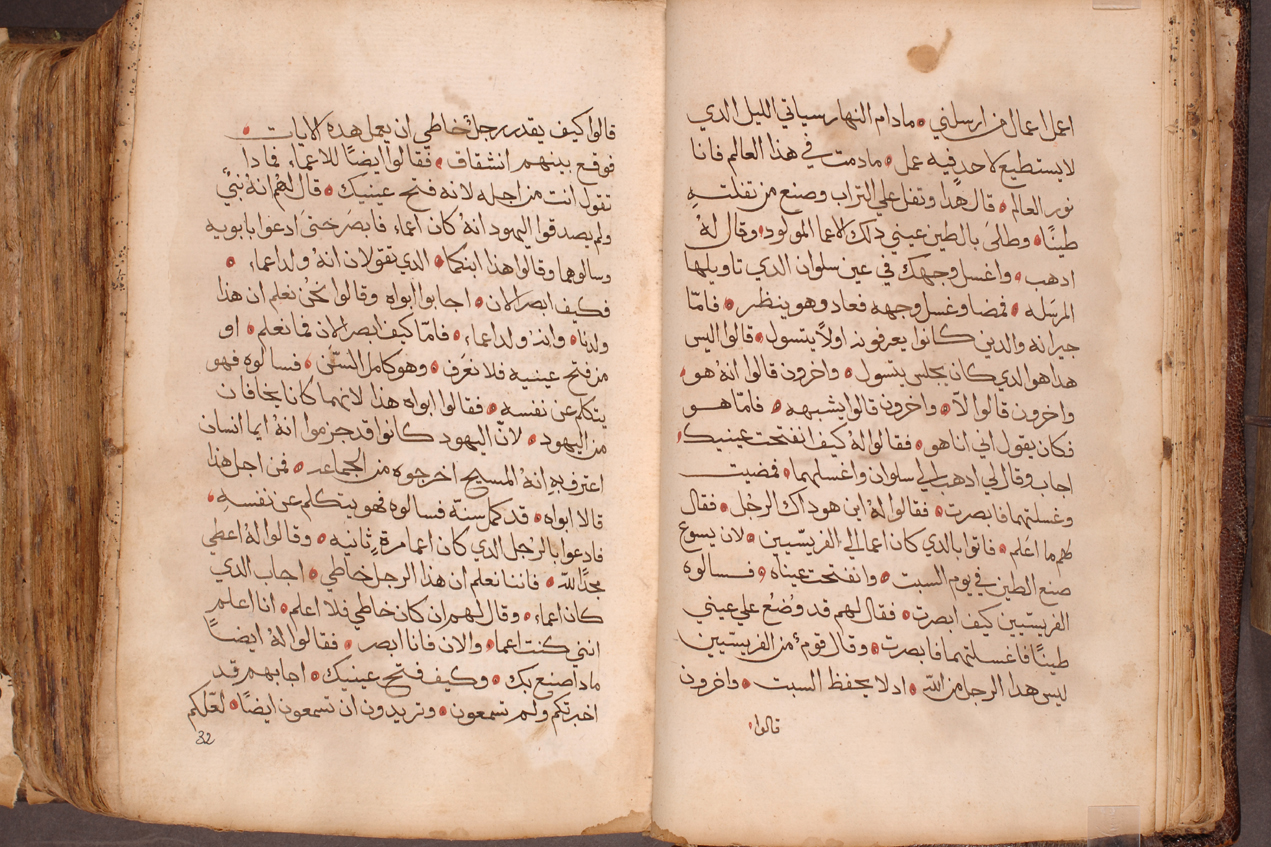 اعمل اعمال من ارسلني • مادام النهار سياتي الليل الذي
لا يستطيع لاحد فيه عمل • مادمت في هذا العالم فانا
نور العالم • قال هدا وتفل علي التراب وصنع من تفلته
طينًا • وطلىَ بالطين عيني دلك الاعما المولود • وقال لهُ
ادهب • واغسل وجهك في عين سلوان الدي تاويلها
المرسَله • فمضا وغسل وجهه فعاد وهو ينظر • فامّا
جيرانه والدين كانوا يعرفونه اولاً يتسول • قالوا اليس
هدا هو الدي كان يجلس يتسول • واخرون قالوا انهُ هو •
واخرون قالوا لآ • واخرون قالوا يشبهه • فامّا هو
فكان يقول اني انا هو • فقالوا لهُ كيف انفتحت عينيك •
اجاب وقال لي ادهب الي سلوان واغسلهما • فمضيت
وغسلتهما فابصرت • فقالوا لهُ اين هو داك الرجل • فقال
لهم ما اعلم • فاتوا بالدي كان اعما الي الفريسّيين • لان يسوع
صنع الطين في يوم السبت • وانفتحت عيناه • فسالوه
الفريسّيين كيف ابصرت • فقال لهم قد وُضُعُ علي عيني
طينًا فاغسلتهما فابصرت • وقال قوم من الفريسّيين
ليس هدا الرجل من الله • اد لا يحفظ السبت • واخرون
قالوا
قالوا كيف يقدر رجل خاطي ان يعمل هده الايات •
فوقع بينهم انشقاق • فقالوا ايضًا للاعماء فادا
تقول انت من اجله لانه فتح عينيك • قال لهُم انهُ نبيً
ولم يصدقوا اليهود انهُ كان اعماء فابصَر حتىَ ادعوا بابويه
وسالوهما وقالوا هذا ابنكما • الدي تقولان انهُ ولد اعماء •
فكيف ابصر الان • اجابوا ابواه وقالوا نحنُ نعلم ان هذا
ولدنا • وانهُ ولد اعماء • فامّا كيف ابصر الان فما نعلم • او
من فتح عينيه فلا نعَرف • وهو كامل السنّ • فسالوه فهو
يتكلم عن نفسه • فقالوا ابواه هذا لانهما كانا يخافان
من اليهود • لانّ اليهود كانوا قد جزموا انهُ ايما انسان
اعترف بهِ انهُ المسيح اخرجوه من الجماعه • فمن اجل هذا
قالا ابواه • قد كمل سنه فسالوه فهو يتكلم عن نفسهِ •
فادعوا بالرجل الدي كان اعما مرة ثانيه • وقالوا لهُ اعطي
مجدًا لله • فاننا نعلم ان هذا الرجل خاطي • اجاب الدي
كان اعماء • وقال لهم ان كان خاطي فلا اعلم • انا اعلم
انني كنت اعما • والان فانا ابصر • فقالوا لهُ ايضًا
مادا صنع بك • وكيف فتح عينيك • اجابهم قد
اخبرتكم ولم تسمعون • وتريدون ان تسمعون ايضًا • لعَلكم
32